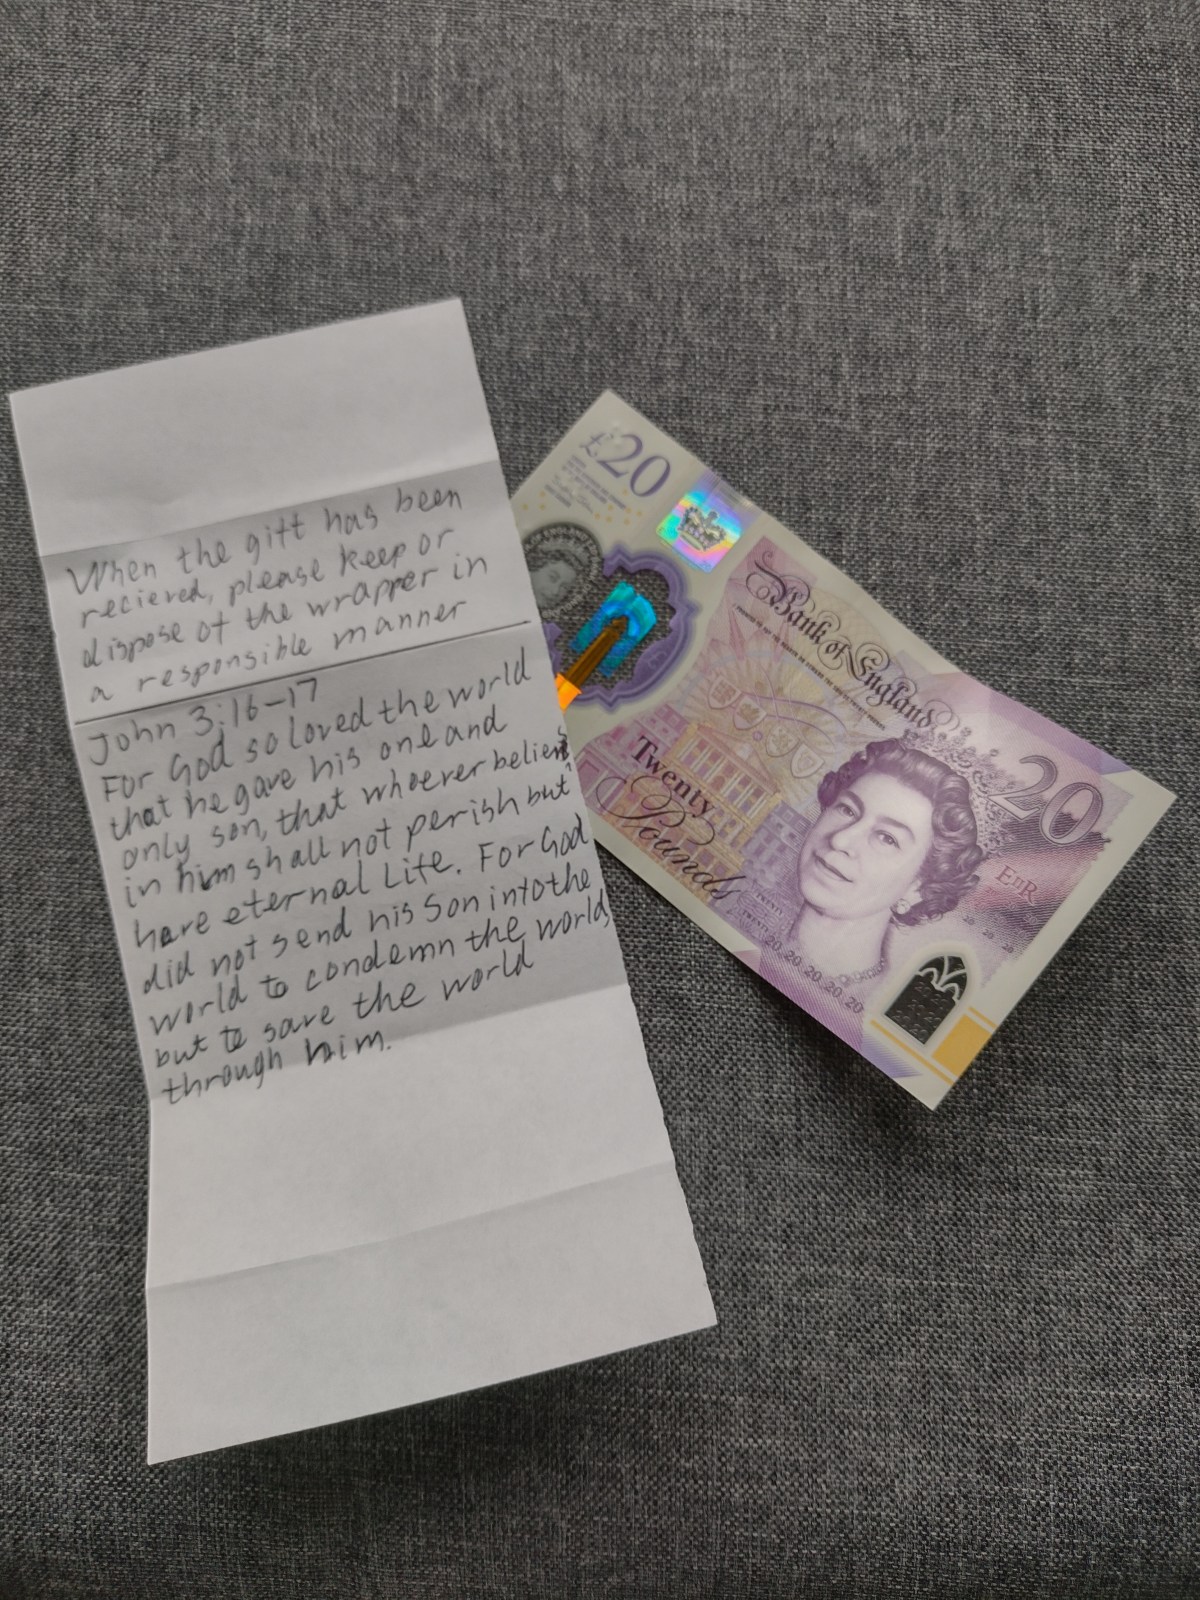 When the gift has been
recieved, please keep or
dispose of the wrapper in
a responsible manner
John 3:16-17
For God so loved the world
that he gave his one and
only son, that whoever believes
in him shall not perish but
have eternal Life. For God
did not send his Son into the
world to condemn the world,
but to save the world
through him.
£20
Bank of England
Twenty
Pounds
20
EIIR
20 20 20 20 20